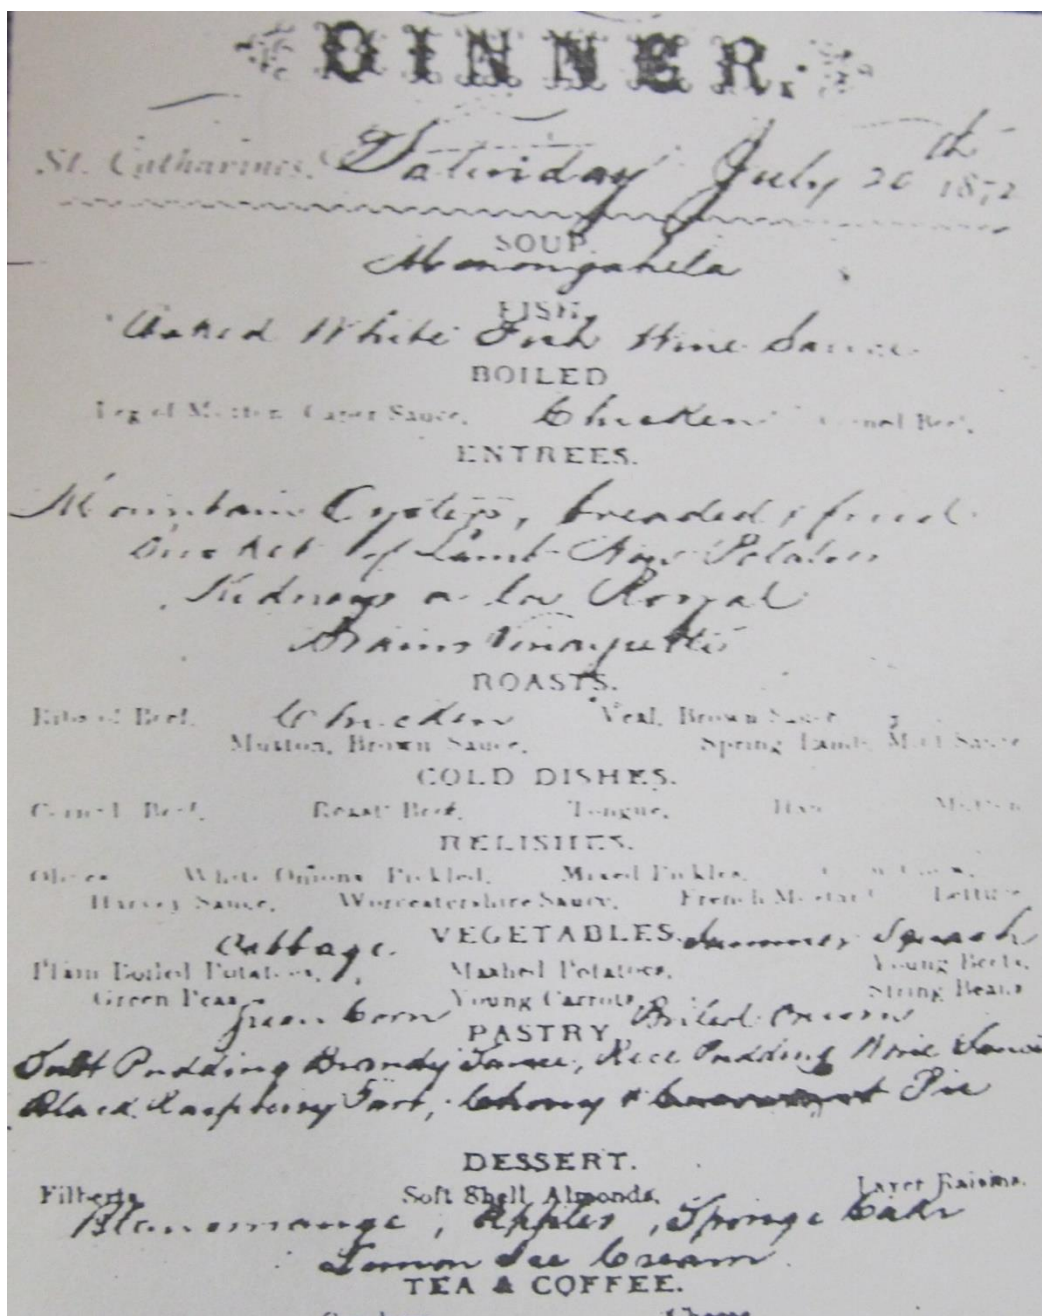 DINNER.
St. Catharines, Saturday July 20th 1872
SOUP.
Monongahela
FISH.
Baked White Fish Wine Sauce
BOILED
Leg of Mutton Caper Sauce. Chicken Corned Beef.
ENTREES.
Mountain Oysters, breaded & fried
of Lamb Potatoes
Kidneys a la Royal
Brains Vinaigrette
ROASTS.
Ribs of Beef. Chicken Veal, Brown Sauce
Mutton, Brown Sauce. Spring Lamb, Mint Sauce
COLD DISHES.
Corned Beef. Roast Beef. Tongue. Ham Mutton
RELISHES.
Olives White Onions Pickled. Mixed Pickles.
Harvey Sauce. Worcestershire Sauce. French Mustard Lettuce
Cabbage. VEGETABLES. Summer Squash
Plain Boiled Potatoes, Mashed Potatoes. Young Beets.
Green Peas Young Carrots String Beans
Green Corn Boiled Onions
PASTRY
Pudding Brandy Sauce, Rice Pudding Wine Sauce
Black Raspberry Tart, Cherry & Pie
DESSERT.
Filberts Soft Shell Almonds, Layer Raisins.
Blancmange, Apples, Sponge Cake
Lemon Ice Cream
TEA & COFFEE.